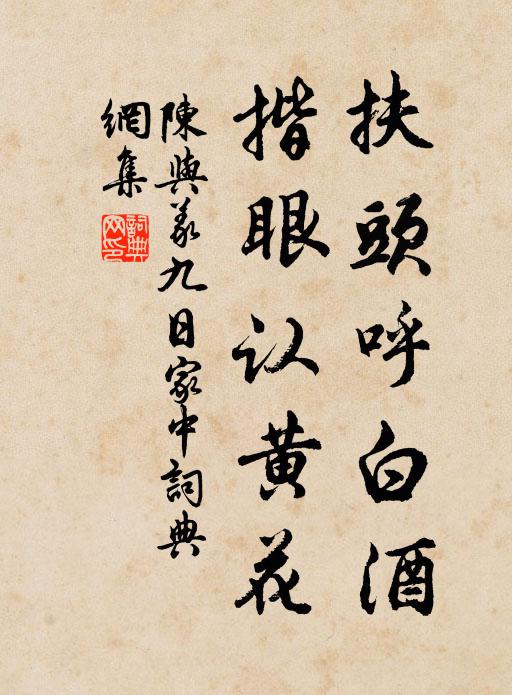 扶頭呼白酒
揩眼认黄花
陳與義九日家中詞典
網集
詞典
网印